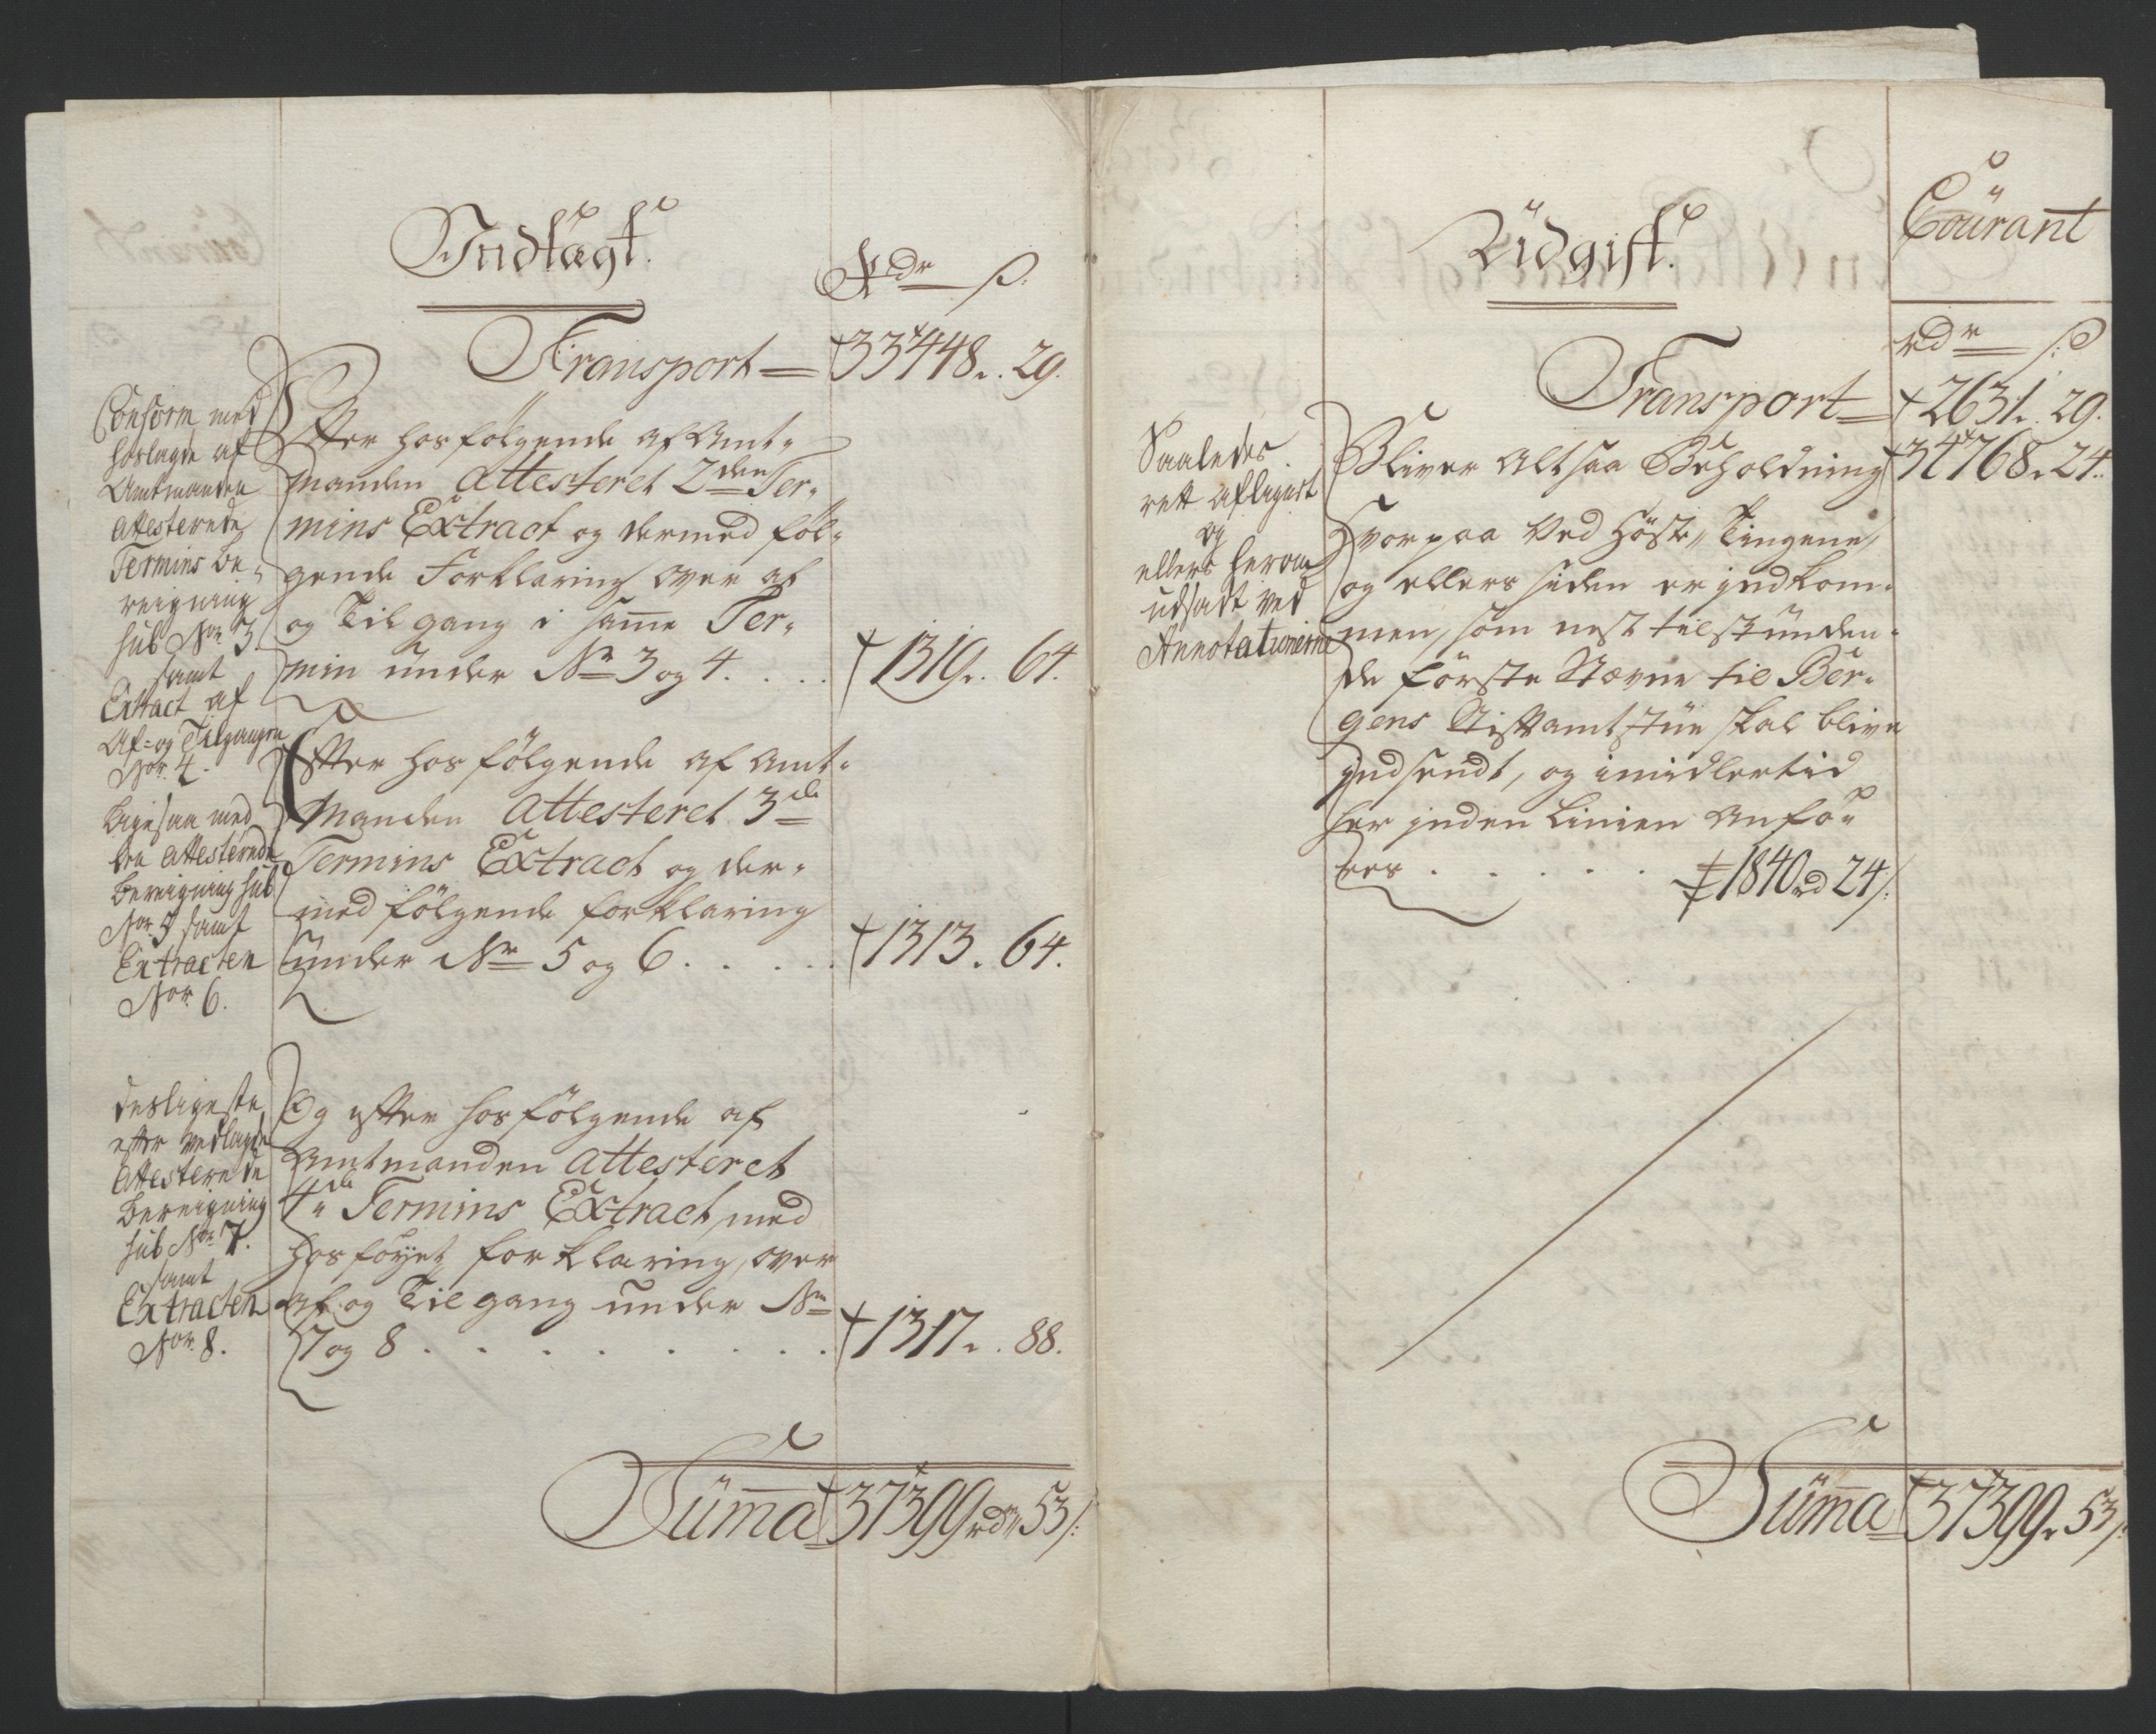 Indtægt.
Rdr ß.
Transport = 33448. 29.
Conform med
hoslagde af
Amtmanden
attesterede
Termins be-
reigning
sub Nor 3.
samt
Extract af
Af- og Tilgangen
Nor. 4.
Efter hosfølgende af Amt-
manden Attesteret 2den Ter-
mins Extract og dermed føl-
gende Forklaring over af
og Tilgang i samme Ter-
min under Nr 3 og 4. . . . 1319. 64.
Ligesaa med
den attesterede
bereigning sub
Nor 5 samt
Extracten
Nor. 6.
Efter hosfølgende af Amt-
manden Attesteret 3de
Termins Extract og der-
med følgende forklaring
under Nr 5 og 6. . . . . 1313. 64.
desligeste
efter vedlagde
attesterede
bereigning
sub Nor 7.
samt
Extracten
Nor. 8.
Og efter hosfølgende af
Amtmanden Attesteret
4de Termins Extract med
hosføyet forklaring, over
af og Tilgang under Nr
7 og 8 . . . . . . . 1317. 88.
Summa 37399 rdr 53 ß:
Udgift.
Courant
rdr ß:
Transport = 2631. 29.
Saaledes
rett aflagust
og
ellers herom
udsadt ved
Annotationerne
Bliver altsaa Beholdning 34768. 24.
Hvorpaa ved Høste Tingene,
og ellers siden er indkom-
men, som nest tilstunden-
de første Stævne til Ber-
gens Stiftamtstue skal blive
indsendt, og imidlertid
her inden Linien anfø-
res . . . . . 1840 rd 24 ß.
Summa 37399. 53 ß.